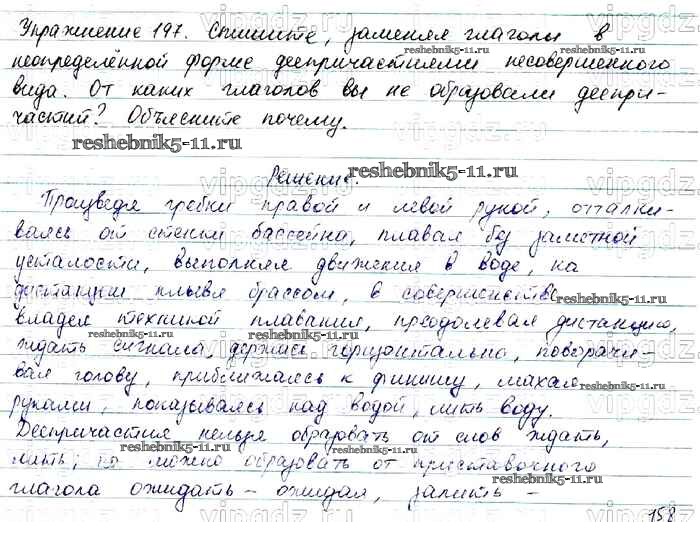 Упражнение 197. Спишите, заменяя глаголы в
reshebnik5-11.ru
неопределённой форме деепричастиями несовершенного
вида. От каких глаголов вы не образовали деепри-
частий? Объясните почему.
reshebnik5-11.ru
reshebnik5-11.ru
Решение.
Произведя гребки правой и левой рукой, отталки-
ваясь от стенки бассейна, плавая без заметной
усталости, выполняя движения в воде, на
дистанции плывя брассом, в совершенстве
reshebnik5-11.ru
владея техникой плавания, преодолевая дистанцию,
ждать сигнала, держась горизонтально, поворачи-
вая голову, приближаясь к финишу, махая
reshebnik5-11.ru
руками, показываясь над водой, лить воду.
Деепричастия нельзя образовать от слов ждать,
reshebnik5-11.ru
лить, но можно образовать от приставочного
глагола ожидать – ожидая, залить –
reshebnik5-11.ru
158